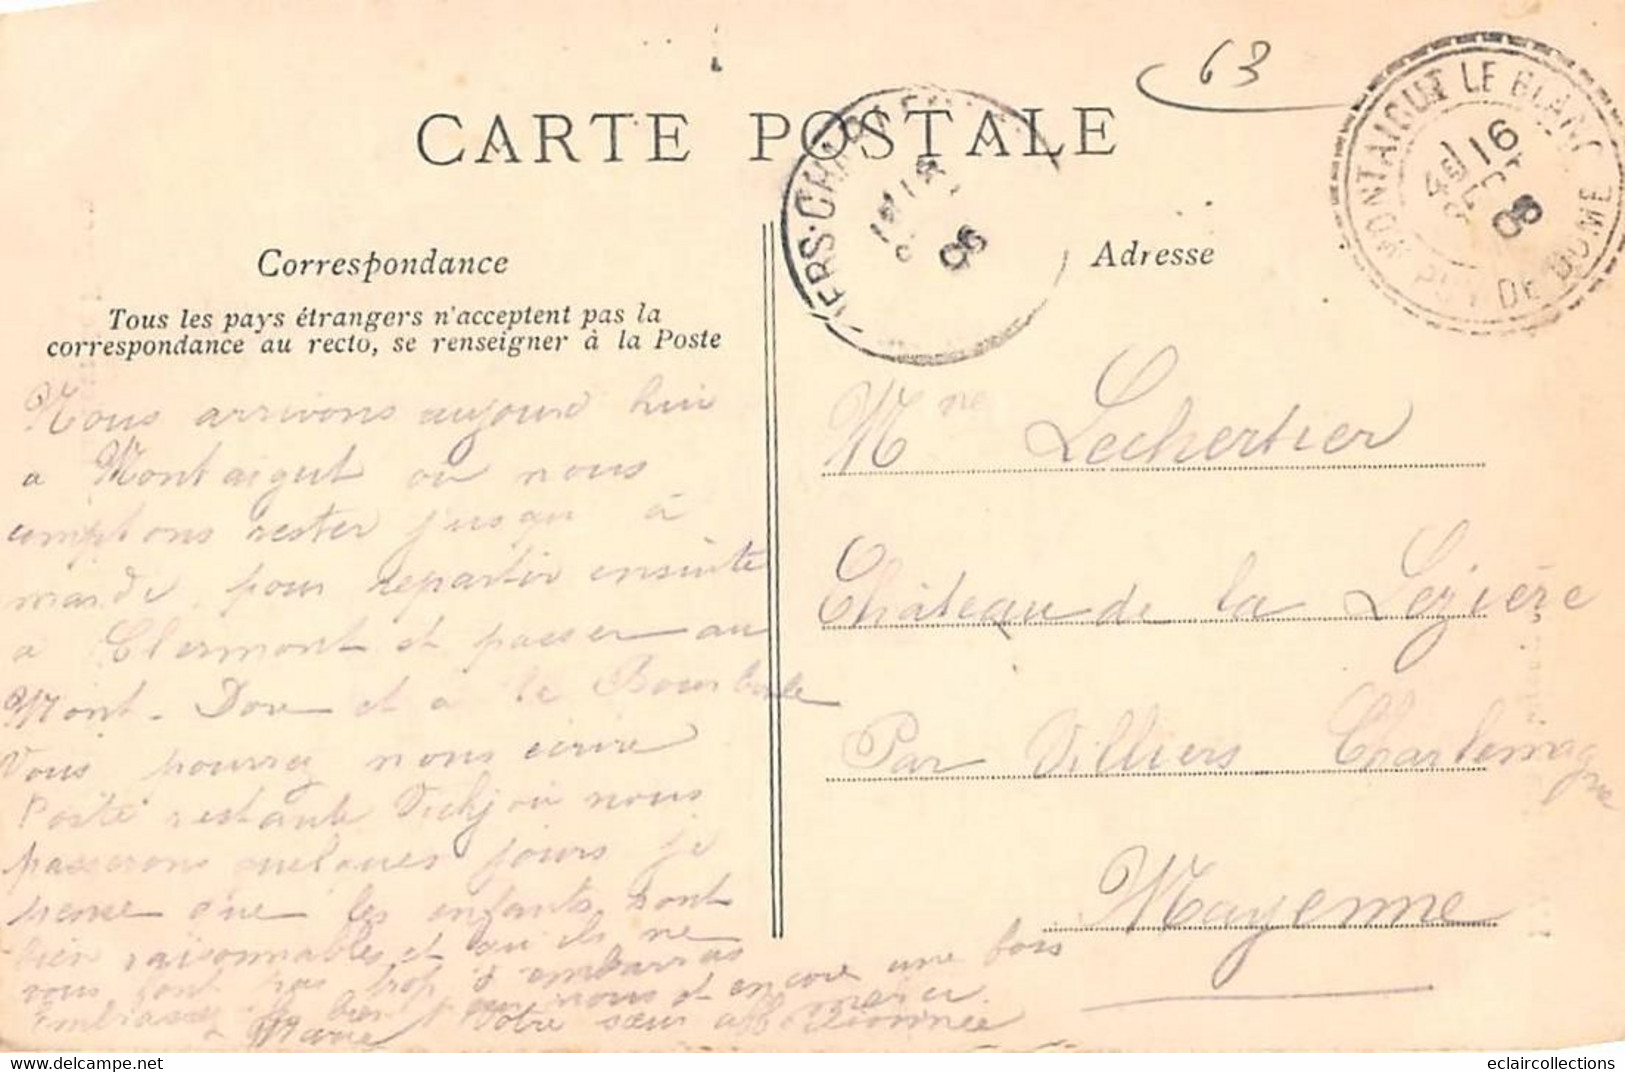 63
CARTE POSTALE
MONTAIGUT LE BLANC
PUY DE DOME
16
08
Correspondance
Adresse
Tous les pays étrangers n'acceptent pas la
correspondance au recto, se renseigner à la Poste
Nous arrivons aujourd hui
a Montaigut ou nous
comptons rester jusqu à
mardi pour repartir ensuite
a Clermont et passer au
Mont-Dore et a la Bourboule
Vous pourrez nous écrire
Poste restante Vichy où nous
passerons quelques jours je
pense que les enfants sont
bien raisonnables et qu ils ne
vous font pas trop d embarras
Embrassez les bien pour nous et encore une fois
merci.
Votre sœur affectionnée
Marie
Mme Lechertier
Château de la Lézière
Par Villiers Charlemagne
Mayenne
eclaircollections